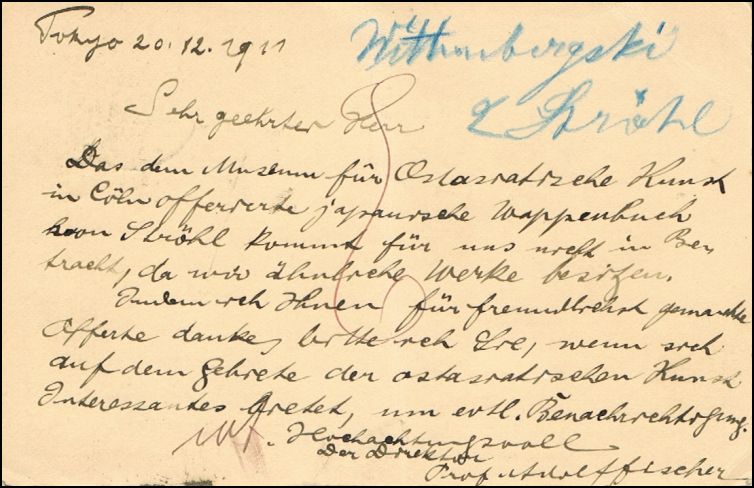 Tokyo 20.12.1911
Wittenbergski
& Ströhl
Sehr geehrter Herr
Das dem Museum für Ostasiatische Kunst
in Cöln offerierte japanische Wappenbuch
von Ströhl kommt für uns nicht in Be-
tracht, da wir ähnliche Werke besitzen.
Indem ich Ihnen für freundlichst gemachte
Offerte danke, bitte ich Sie, wenn sich
auf dem Gebiete der ostasiatischen Kunst
Interessantes bietet, um evtl. Benachrichtigung.
Hochachtungsvoll
Der Direktor
Prof. Adolf Fischer